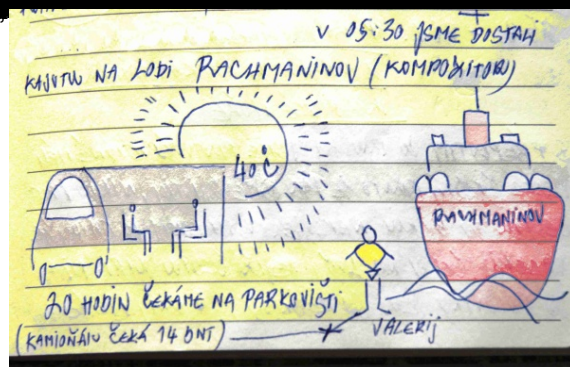 v 05:30 JSME DOSTALI
KAJUTU NA LODI RACHMANINOV (KOMPOZITOR)
40°C
RACHMANINOV
20 HODIN ČEKÁME NA PARKOVIŠTI
(KAMIOŇÁKU ČEKÁ 14 DNÍ)
VALERIJ